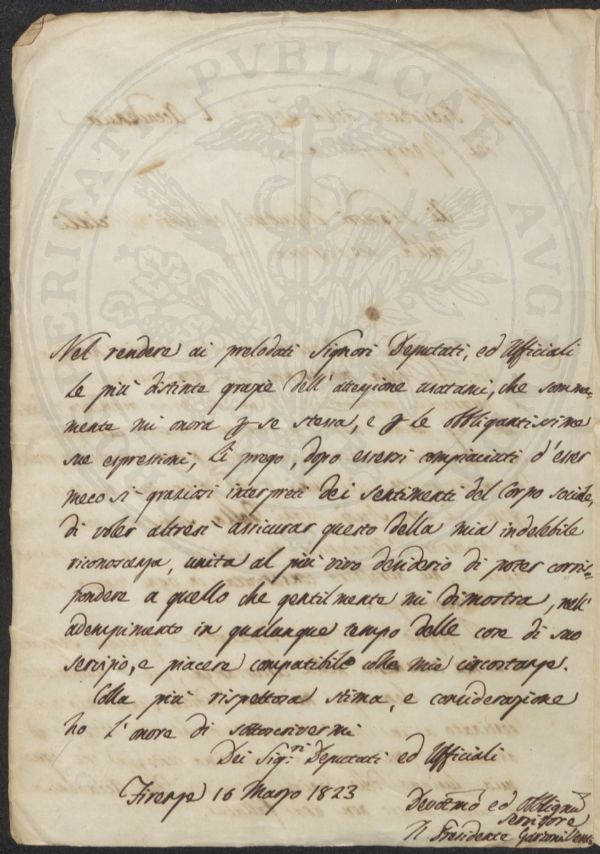 PUBLICAE
VERITATI
AVG
Nel rendere ai prelodati Signori Deputati, ed Ufficiali
Le più distinte grazie dell'attenzione usatami, che somma-
mente mi onora p se stessa, e p le obbligantissime
sue espressioni, Li prego, dopo essersi compiaciuti d'esser
meco sì graziosi interpreti dei sentimenti del Corpo sociale,
di voler altresì assicurar questo della mia indelebile
riconoscenza, unita al più vivo desiderio di poter corri-
spondere a quello che gentilmente mi dimostra, nell'
adempimento in qualunque tempo delle cose di suo
servizio, e piacere compatibile colle mie circostanze.
Colla più rispettosa stima, e considerazione
ho l'onore di sottoscrivermi
Dei Sig.ri Deputati ed Ufficiali
Firenze 16 Marzo 1823
Devotmo ed Obbligmo
Servitore
Il Presidente Garzoni Venturi